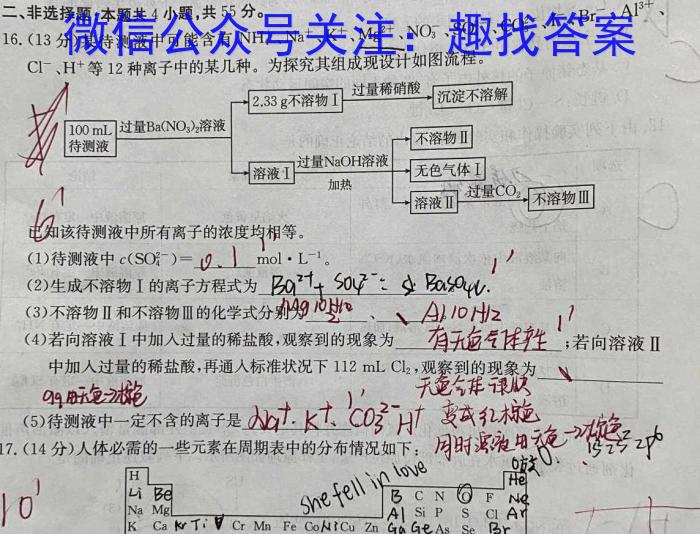 二、非选择题:本题共4小题,共55分。
微信公众号关注:趣找答案
16.(13分)某待测液中可能含有NH₄⁺、Na⁺、K⁺、Mg²⁺、NO₃⁻、Br⁻、Al³⁺、
Cl⁻、H⁺等12种离子中的某几种。为探究其组成现设计如图流程。
100 mL 待测液
过量Ba(NO₃)₂溶液
2.33 g不溶物Ⅰ
过量稀硝酸
沉淀不溶解
溶液Ⅰ
过量NaOH溶液
加热
不溶物Ⅱ
无色气体Ⅰ
溶液Ⅱ
过量CO₂
不溶物Ⅲ
6'
已知该待测液中所有离子的浓度均相等。
(1)待测液中c(SO₄²⁻)= 0.1 mol·L⁻¹。
(2)生成不溶物Ⅰ的离子方程式为 Ba²⁺+SO₄²⁻= BaSO₄↓.
(3)不溶物Ⅱ和不溶物Ⅲ的化学式分别为 、 Al(OH)₂
(4)若向溶液Ⅰ中加入过量的稀盐酸,观察到的现象为 有无色气体产生 ;若向溶液Ⅱ
中加入过量的稀盐酸,再通人标准状况下112 mL Cl₂,观察到的现象为
(5)待测液中一定不含的离子是 Na⁺.K⁺.CO₃²⁻H⁺
17.(14分)人体必需的一些元素在周期表中的分布情况如下:
10'
she fell in love
1s²2s²2p⁶
H He
Li Be B C N O F Ne
Na Mg Al Si P S Cl Ar
K Ca Ti V Cr Mn Fe Co Ni Cu Zn Ga Ge As Se Br